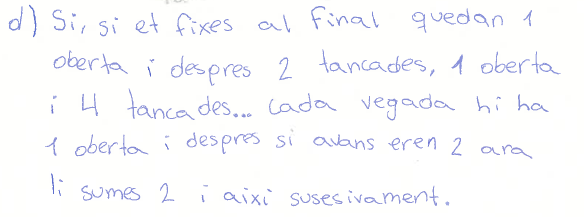 d) Si, si et fixes al final quedan 1
oberta i despres 2 tancades, 1 oberta
i 4 tancades... cada vegada hi ha
1 oberta i despres si avans eren 2 ara
li sumes 2 i aixi susesivament.